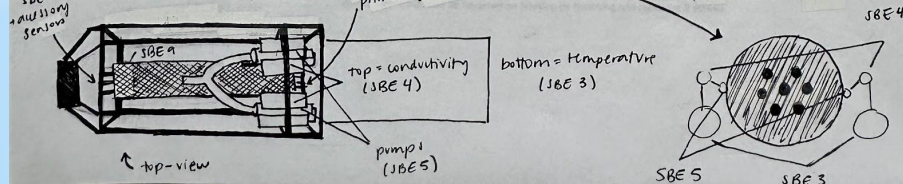 + auxillary
sensors
SBE 9
top = conductivity
(SBE 4)
bottom = temperature
(SBE 3)
pumps
(SBE5)
↑ top-view
SBE 4
SBE 5
SBE 3